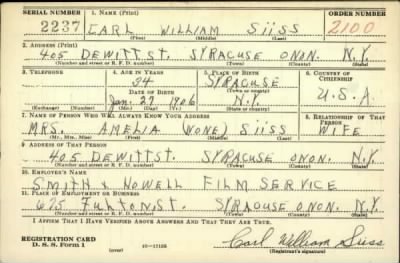 SERIAL NUMBER 1. NAME (Print) ORDER NUMBER
2237 CARL WILLIAM SiiSS 2100
(First) (Middle) (Last)
2. ADDRESS (Print)
405 DEWITT ST. SYRACUSE ONON. N.Y.
(Number and street or R. F. D. number) (Town) (County) (State)
3. TELEPHONE 4. AGE IN YEARS 5. PLACE OF BIRTH 6. COUNTRY OF CITIZENSHIP
34 SYRACUSE
DATE OF BIRTH (Town or county)
Jan. 27 1906 N.Y. U.S.A.
(Exchange) (Number) (Mo.) (Day) (Yr.) (State or country)
7. NAME OF PERSON WHO WILL ALWAYS KNOW YOUR ADDRESS 8. RELATIONSHIP OF THAT PERSON
MRS. AMELIA (NONE) SiiSS WIFE
(Mr., Mrs., Miss) (First) (Middle) (Last)
9. ADDRESS OF THAT PERSON
405 DEWITT ST. SYRACUSE ONON. N.Y.
(Number and street or R. F. D. number) (Town) (County) (State)
10. EMPLOYER'S NAME
SMITH & HOWELL FILM SERVICE
11. PLACE OF EMPLOYMENT OR BUSINESS
675 Fulton St. SYRACUSE ONON. N.Y.
(Number and street or R. F. D. number) (Town) (County) (State)
I AFFIRM THAT I HAVE VERIFIED ABOVE ANSWERS AND THAT THEY ARE TRUE.
REGISTRATION CARD
D. S. S. Form 1 (over) 16—17105 Carl William Siiss
(Registrant's signature)